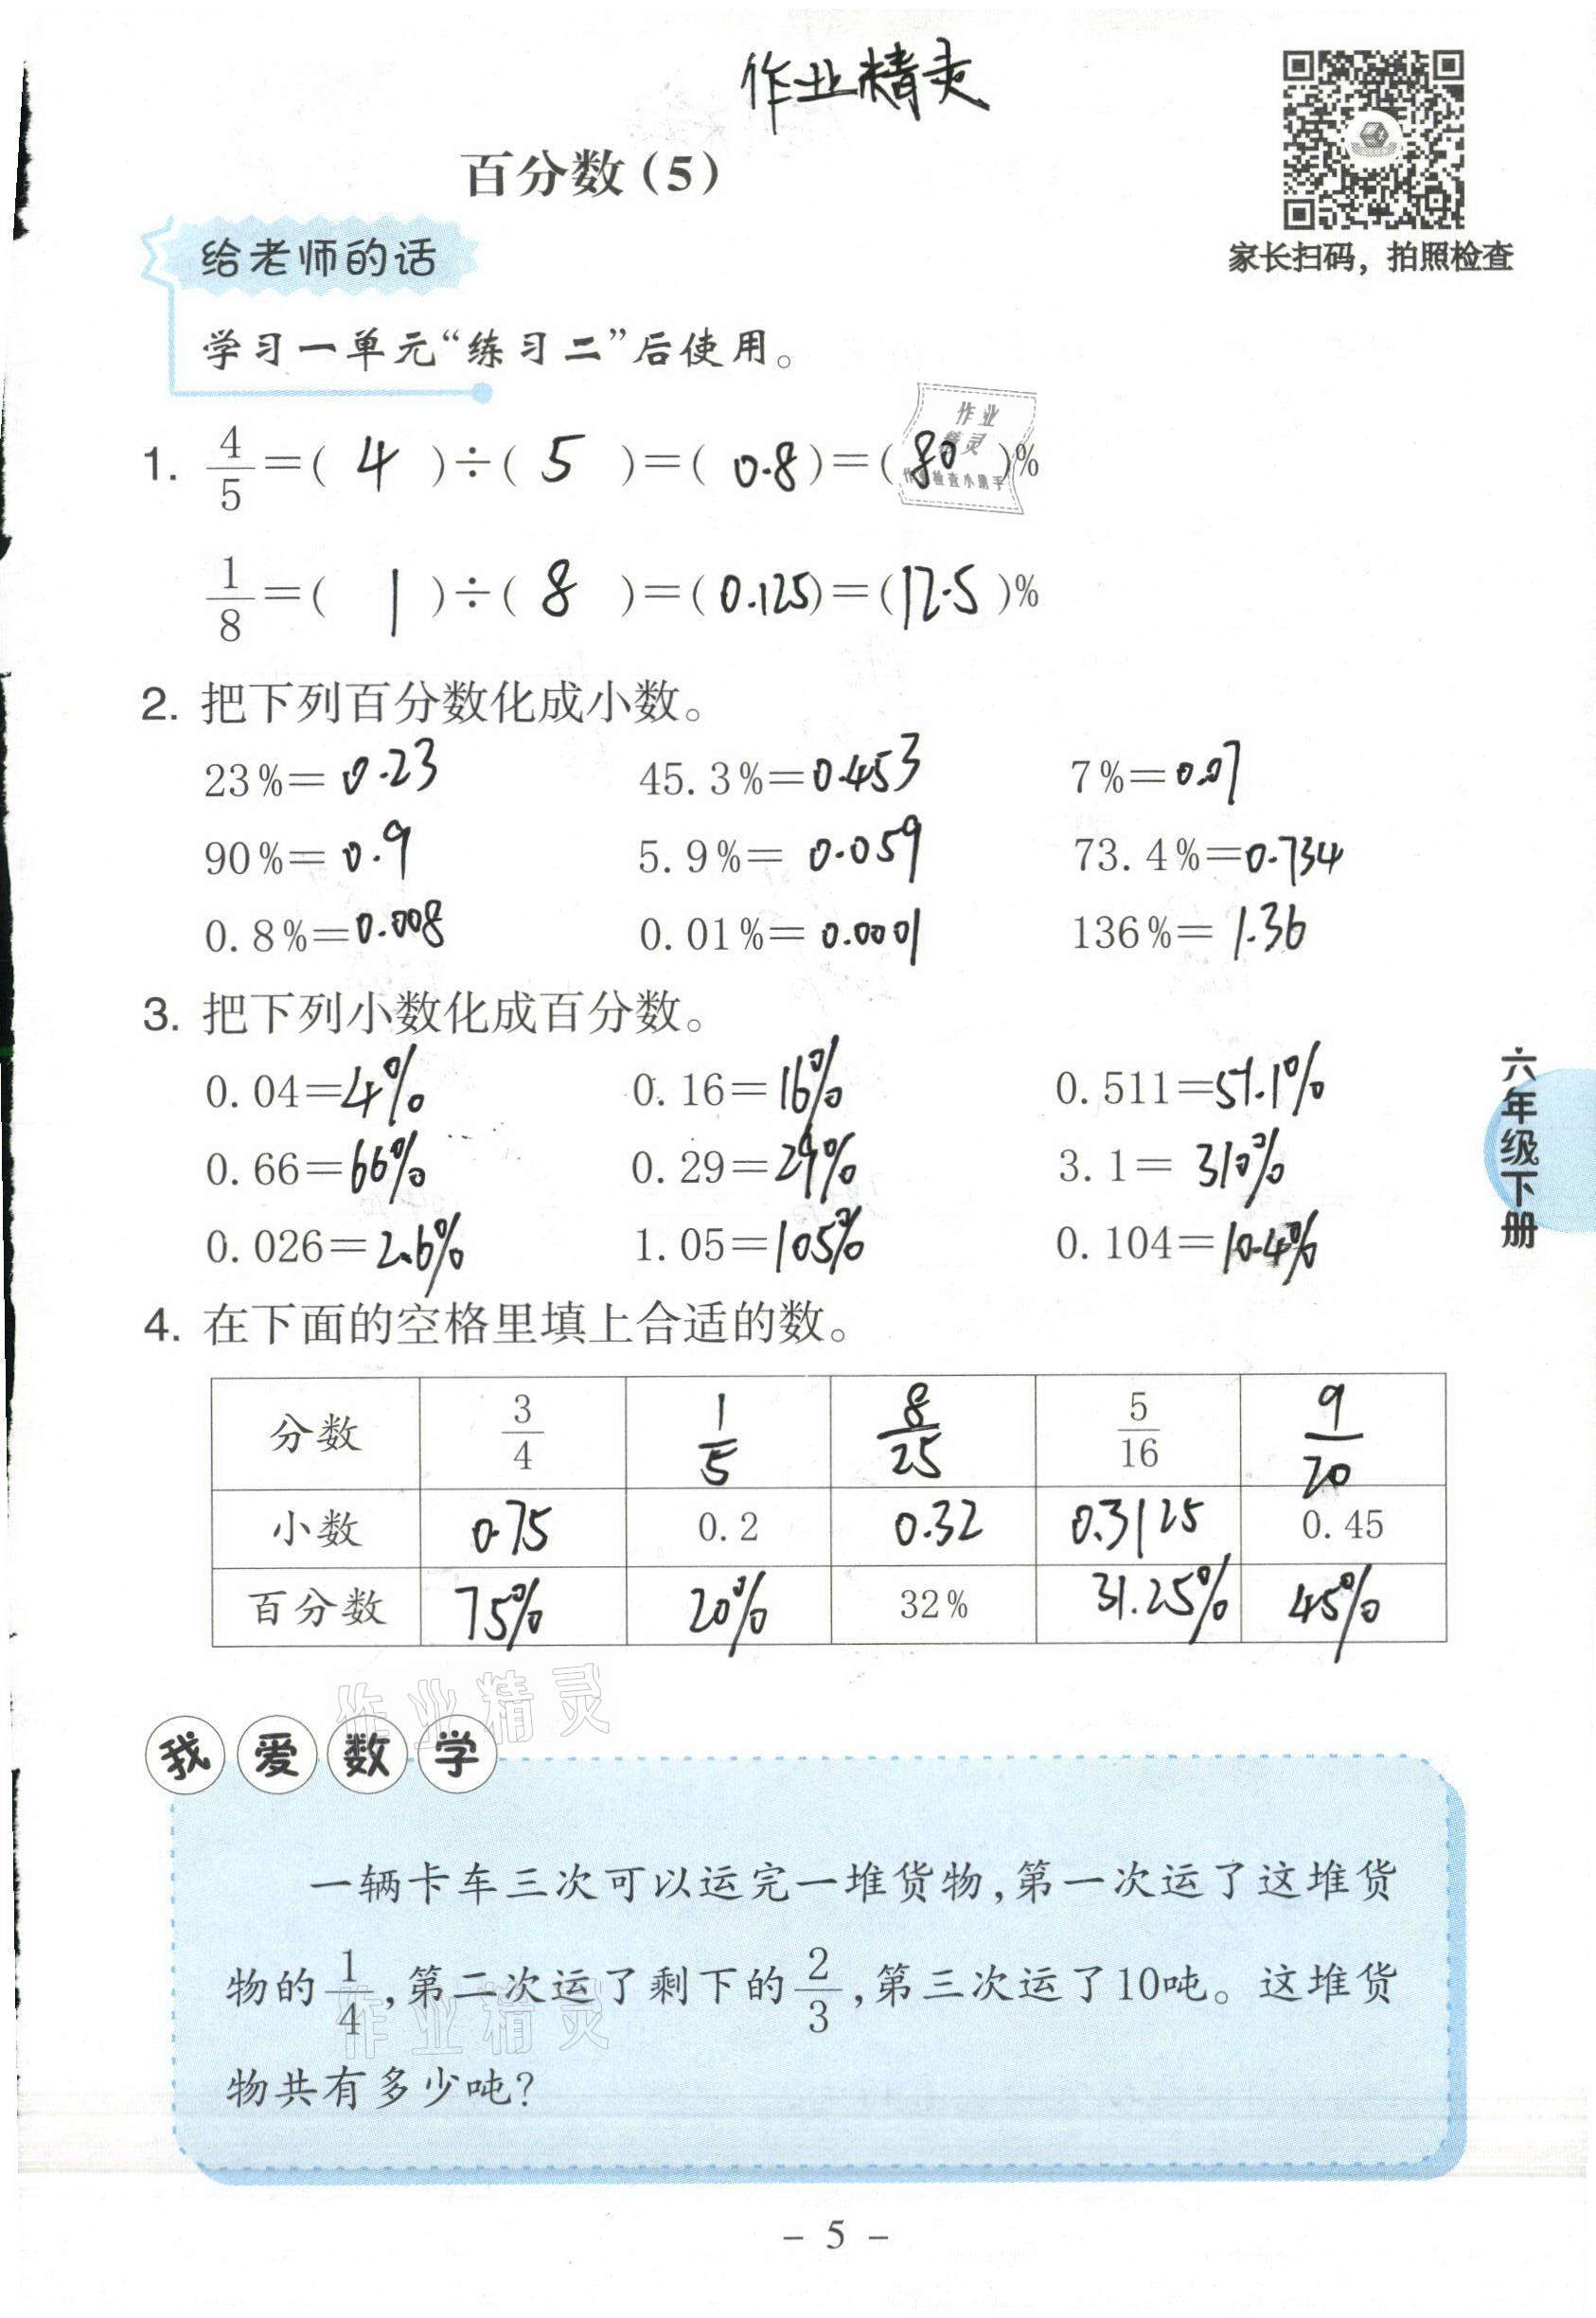 作业精灵
百分数(5)
家长扫码，拍照检查
给老师的话
学习一单元“练习二”后使用。
作业
精灵
作业检查小助手
1. 4/5=( 4 )÷( 5 )=( 0.8 )=( 80 )%
1/8=( 1 )÷( 8 )=( 0.125 )=( 12.5 )%
2. 把下列百分数化成小数。
23%= 0.23 45.3%= 0.453 7%= 0.07
90%= 0.9 5.9%= 0.059 73.4%= 0.734
0.8%= 0.008 0.01%= 0.0001 136%= 1.36
3. 把下列小数化成百分数。
0.04= 4% 0.16= 16% 0.511= 51.1%
0.66= 66% 0.29= 29% 3.1= 310%
0.026= 2.6% 1.05= 105% 0.104= 10.4%
六年级下册
4. 在下面的空格里填上合适的数。
分数 3/4 1/5 8/25 5/16 9/20
小数 0.75 0.2 0.32 0.3125 0.45
百分数 75% 20% 32% 31.25% 45%
作业精灵
我爱数学
一辆卡车三次可以运完一堆货物,第一次运了这堆货
物的1/4,第二次运了剩下的2/3,第三次运了10吨。这堆货
作业精灵
物共有多少吨?
- 5 -